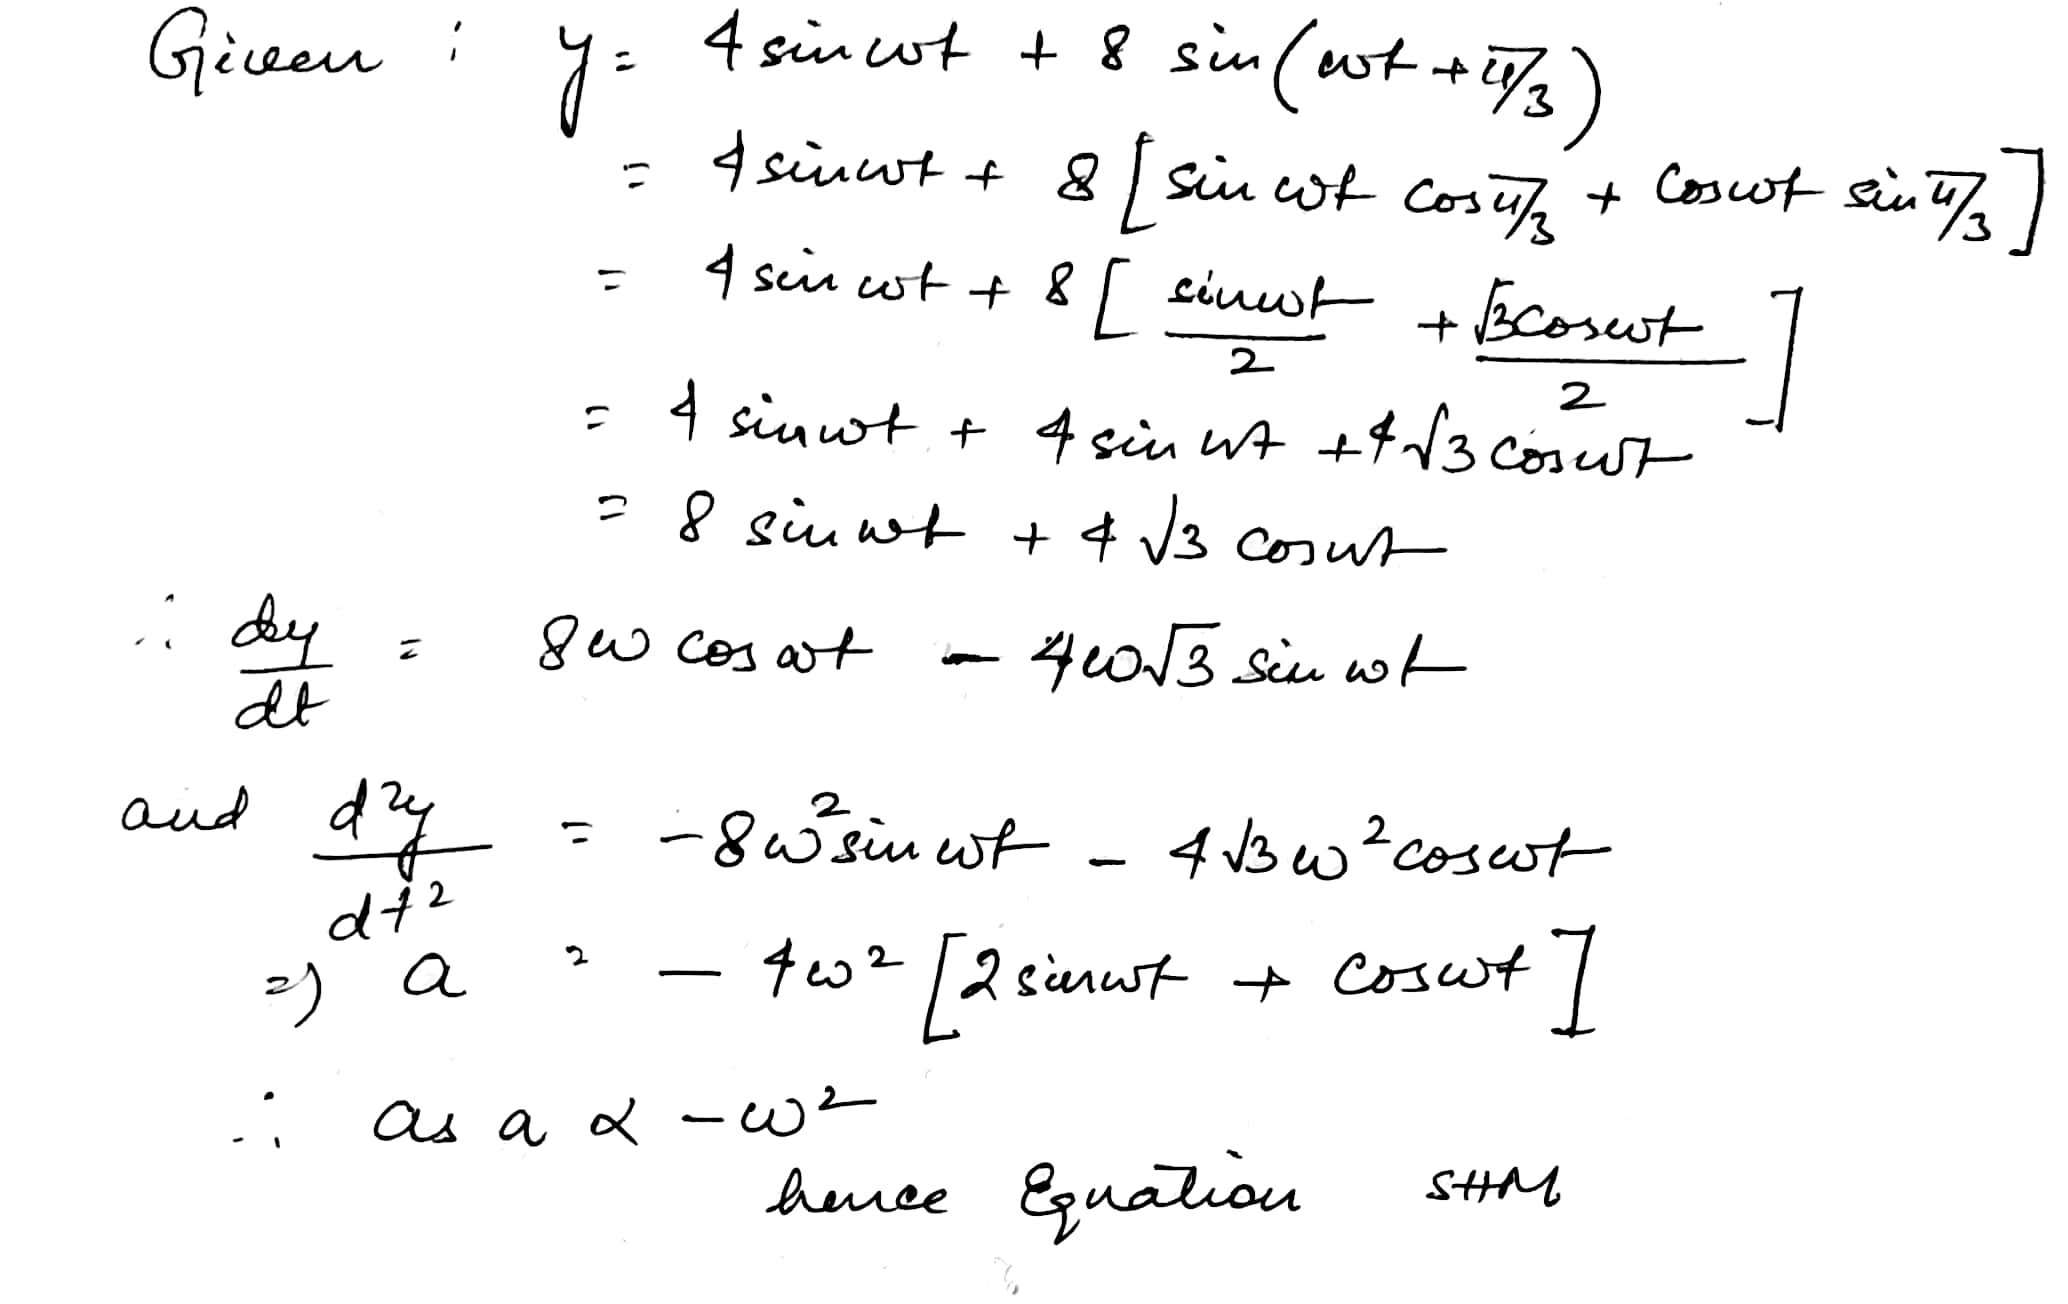 Given : y = 4 sin ωt + 8 sin(ωt + π/3)
= 4 sin ωt + 8 [sin ωt cos π/3 + cos ωt sin π/3]
= 4 sin ωt + 8 [ sin ωt / 2 + √3 cos ωt / 2 ]
= 4 sin ωt + 4 sin ωt + 4√3 cos ωt
= 8 sin ωt + 4√3 cos ωt
∴ dy/dt = 8ω cos ωt - 4ω√3 sin ωt
and d²y/dt² = -8ω² sin ωt - 4√3 ω² cos ωt
=) a = - 4ω² [2 sin ωt + cos ωt]
∴ as a α -ω²
hence Equation SHM